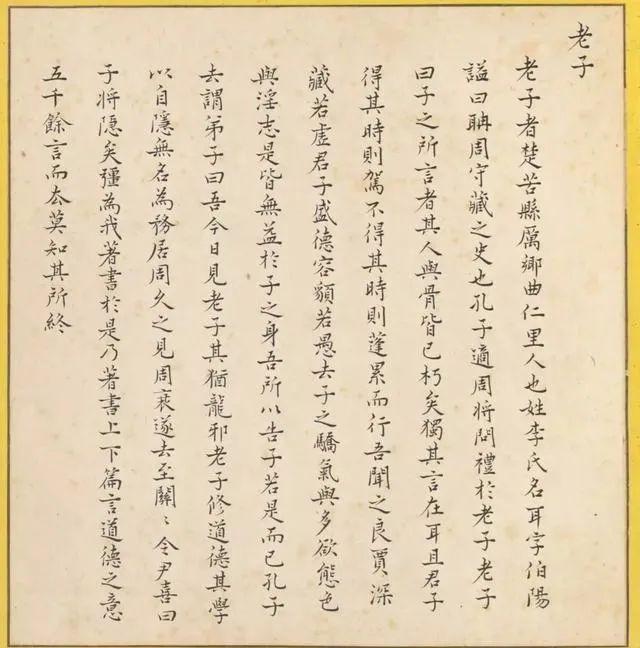 老子
老子者楚苦縣厲鄉曲仁里人也姓李氏名耳字伯陽
謚曰聃周守藏之史也孔子適周將問禮於老子老子
曰子之所言者其人與骨皆已朽矣獨其言在耳且君子
得其時則駕不得其時則蓬累而行吾聞之良賈深
藏若虛君子盛德容貌若愚去子之驕氣與多欲態色
與淫志是皆無益於子之身吾所以告子若是而已孔子
去謂弟子曰吾今日見老子其猶龍邪老子修道德其學
以自隱無名為務居周久之見周衰遂去至關〻令尹喜曰
子將隱矣彊為我著書於是乃著書上下篇言道德之意
五千餘言而去莫知其所終